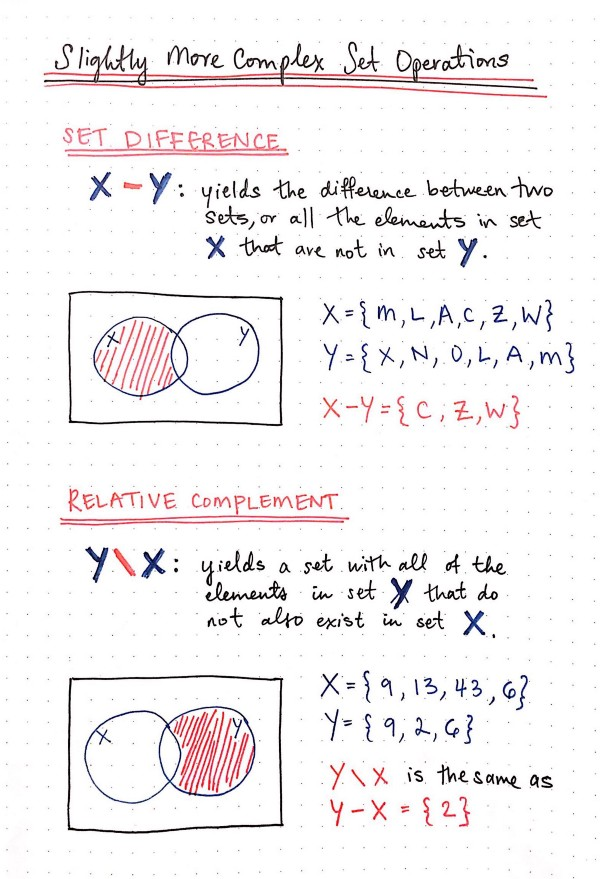 Slightly More Complex Set Operations
SET DIFFERENCE
X - Y: yields the difference between two
sets, or all the elements in set
X that are not in set Y.
X
Y
X = { M, L, A, C, Z, W}
Y = { X, N, O, L, A, M}
X-Y = { C, Z, W}
RELATIVE COMPLEMENT
Y \ X: yields a set with all of the
elements in set Y that do
not also exist in set X.
X
Y
X = { 9, 13, 43, 6}
Y = { 9, 2, 6}
Y \ X is the same as
Y - X = { 2}